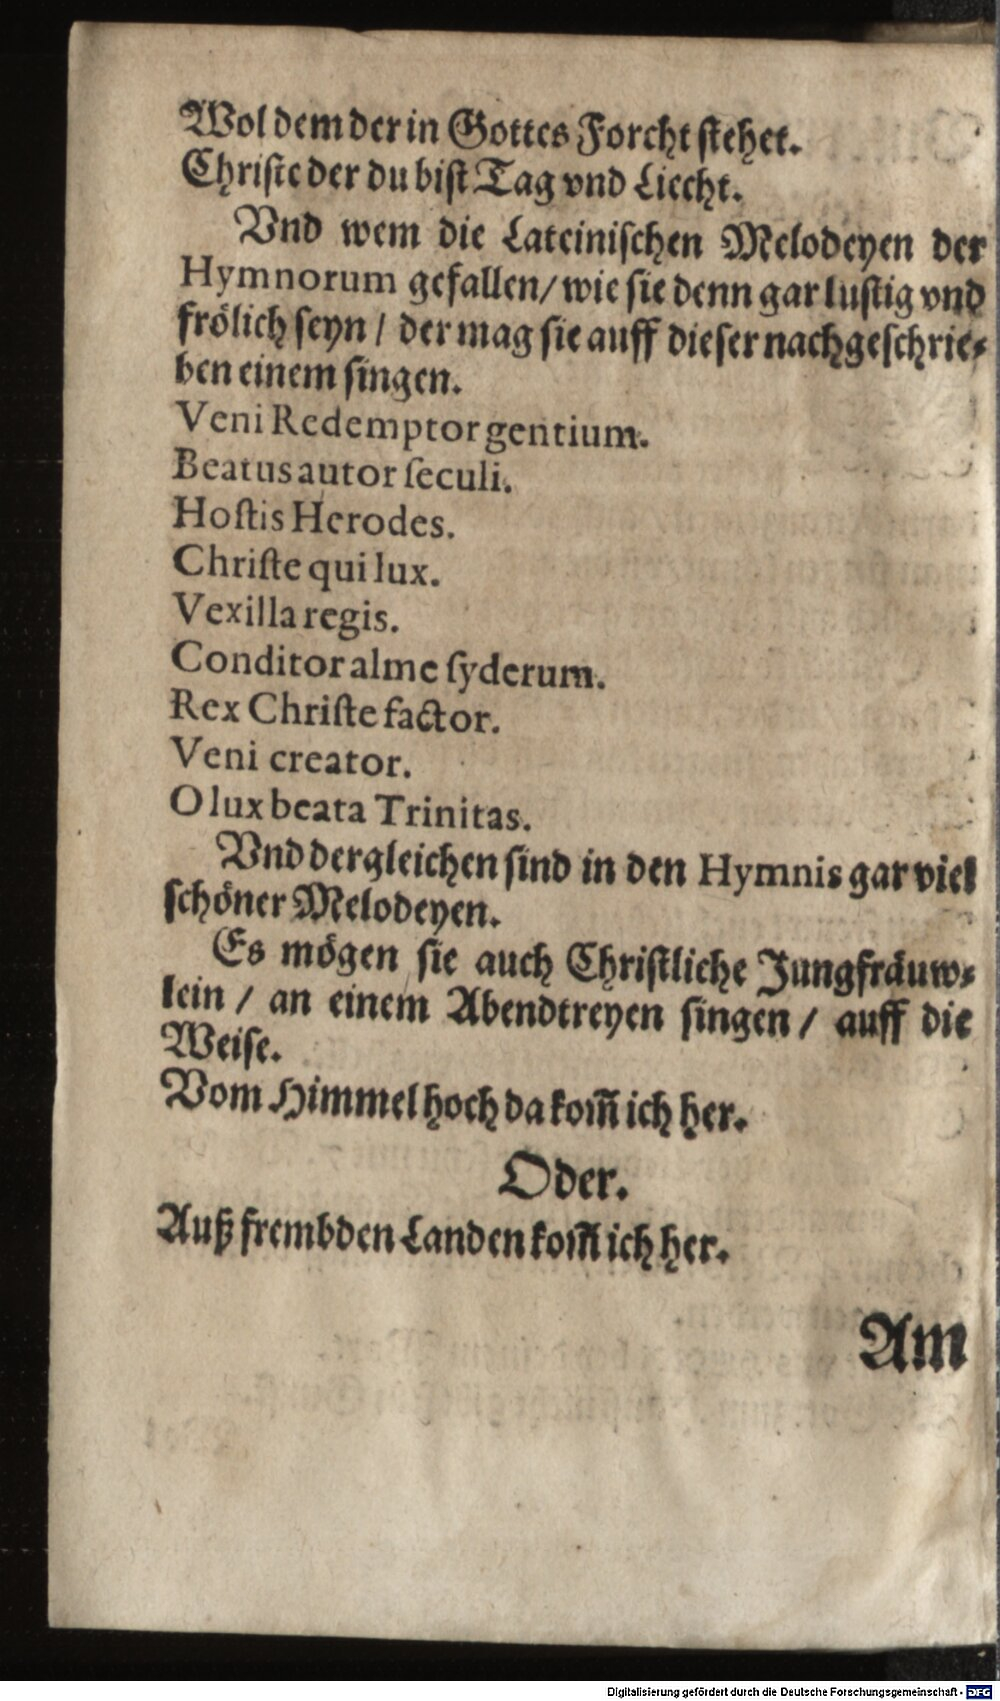 Wol dem der in Gottes Forcht stehet.
Christe der du bist Tag vnd Liecht.
Vnd wem die Lateinischen Melodeyen der
Hymnorum gefallen/ wie sie denn gar lustig vnd
frölich seyn / der mag sie auff dieser nachgeschrie-
ben einem singen.
Veni Redemptor gentium.
Beatus autor seculi.
Hostis Herodes.
Christe qui lux.
Vexilla regis.
Conditor alme syderum.
Rex Christe factor.
Veni creator.
O lux beata Trinitas.
Vnd dergleichen sind in den Hymnis gar viel
schöner Melodeyen.
Es mögen sie auch Christliche Jungfräuw-
lein / an einem Abendtreyen singen / auff die
Weise.
Vom Himmel hoch da kom̃ ich her.
Oder.
Auß frembden Landen kom̃ ich her.
Am
Digitalisierung gefördert durch die Deutsche Forschungsgemeinschaft - DFG